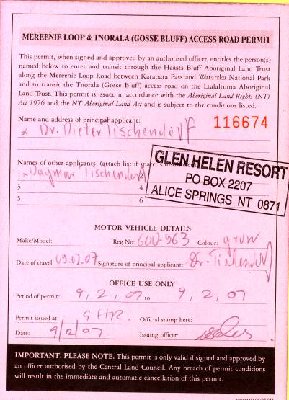 MEREENIE LOOP & TNORALA (GOSSE BLUFF) ACCESS ROAD PERMIT
This permit, when signed and approved by an authorised officer entitles the person(s)
named below to enter and transit through the Haasts Bluff Aboriginal Land Trust
along the Mereenie Loop Road between Katarapa Pass and Watarrka National Park
and to transit the Tnorala (Gosse Bluff) access road on the Ltalaltuma Aboriginal
Land Trust. This permit is issued in accordance with the Aboriginal Land Rights (NT)
Act 1976 and the NT Aboriginal Land Act and is subject to the conditions listed.
Name and address of principal applicant:
116674
Dr. Dieter Tischendorff
Names of other applicants (attach list if
GLEN HELEN RESORT
PO BOX 2207
ALICE SPRINGS NT 0871
Dagmar Tischendorff
MOTOR VEHICLE DETAILS
Make/Model: Reg No: 563 Colour:
Date of travel 09.02.07 Signature of principal applicant:
OFFICE USE ONLY
Period of permit: 9, 2, 07 to 9, 2, 07
Permit issued at Official stamp here:
Date: 9/2/07 Issuing officer:
IMPORTANT: PLEASE NOTE: This permit is only valid if signed and approved by
an officer authorised by the Central Land Council. Any breach of permit conditions
will result in the immediate and automatic cancellation of this permit.